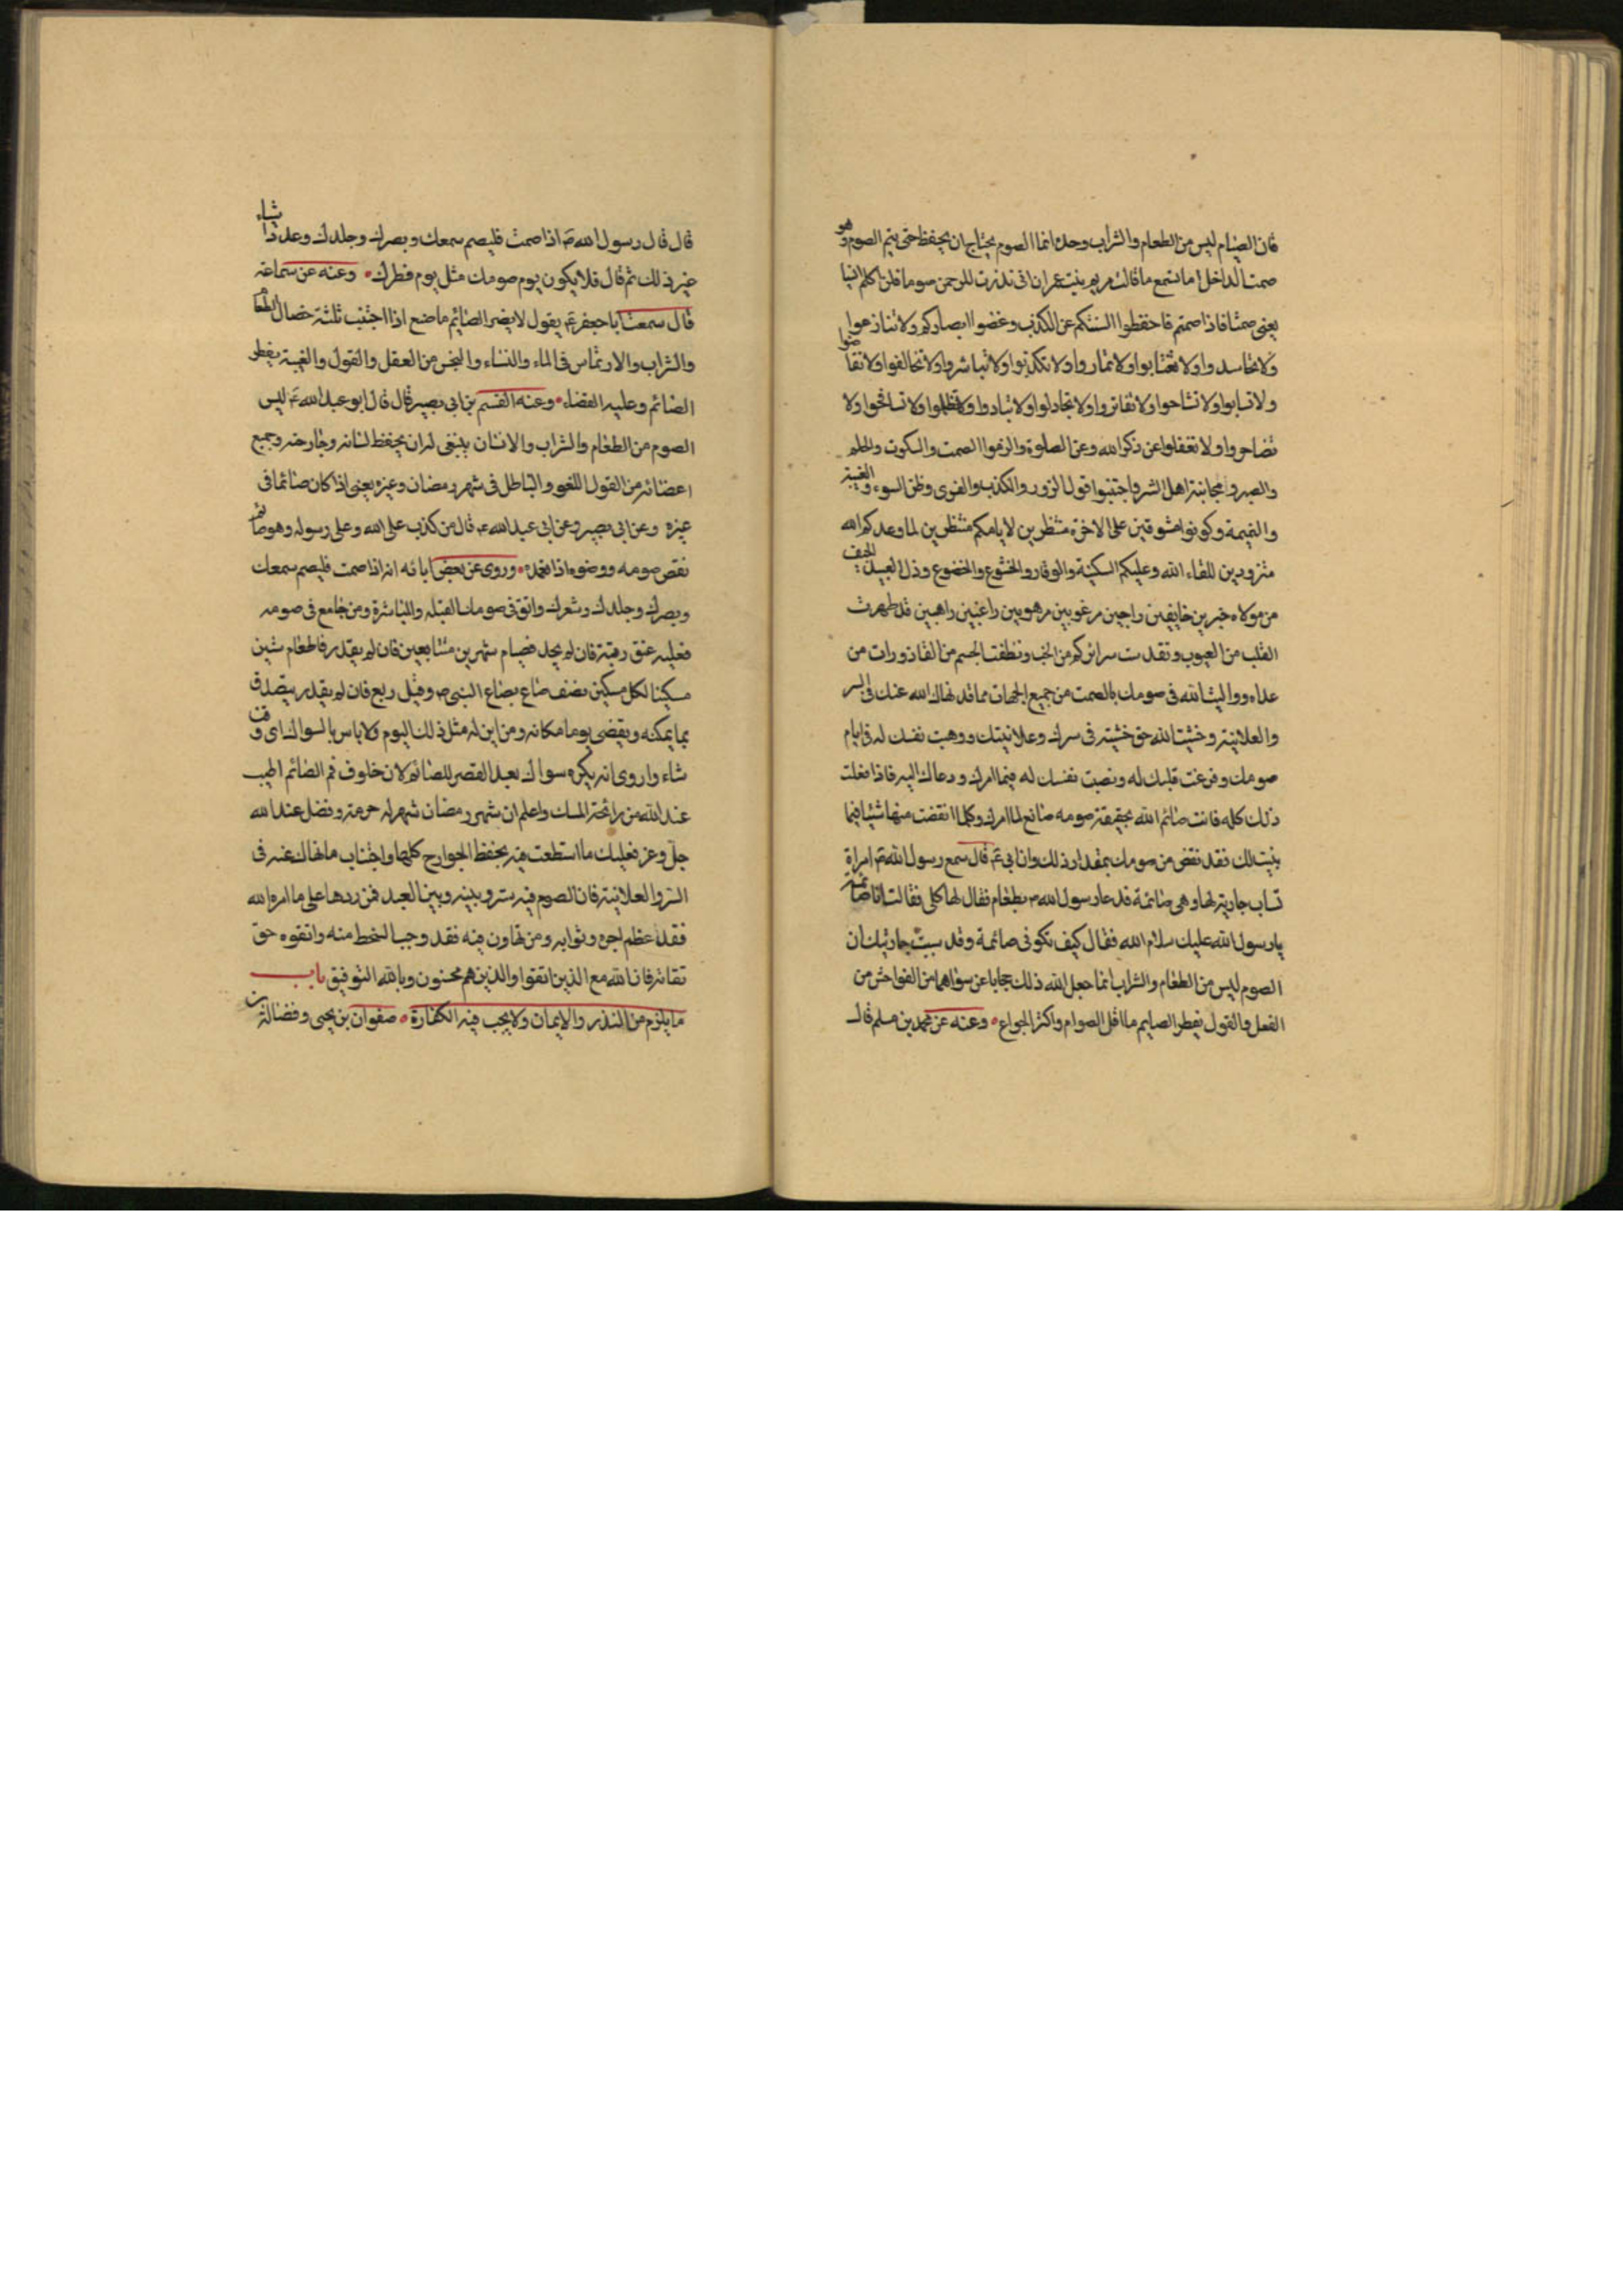 فان الصيام ليس من الطعام والشراب وحده انما الصوم يحتاج ان يحفظ حتى يتم الصوم وهو
صمت الداخل اما تسمع ما قالت مريم بنت عمران انى نذرت للرحمن صوما فلن اكلم انسيا
يعنى صمتا فاذا صمتم فاحفظوا السنتكم عن الكذب وغضوا ابصاركم ولا تنازعوا
ولا تحاسدوا ولا تغتابوا ولا تماروا ولا تكذبوا ولا تباشروا ولا تخالفوا ولا تغاضبوا
ولا تسابوا ولا تشاتموا ولا تفاتروا ولا تجادلوا ولا تبادوا ولا تظلموا ولا تسافهوا ولا
تضاجروا ولا تغفلوا عن ذكر الله وعن الصلوة والزموا الصمت والسكوت والحلم
والصبر و مجانبة اهل الشر واجتنبوا قول الزور والكذب والفرى وظن السوء والغيبة
والنميمة وكونوا مشرفين على الاخرة منتظرين لايامكم منتظرين لما وعدكم الله
متزودين للقاء الله وعليكم السكينة والوقار والخشوع والخضوع وذل العبيد الخيف
من مولاه خايفين راجين مرغوبين مرهوبين راغبين راهبين قد طهرت
القلب من العيوب وتقدست سرائركم من الخب ونظفت الجسم من القاذورات من
عداه وواليت الله فى صومك بالصمت من جميع الجهات مما قد نهاك الله عنه فى السر
والعلانية وخشيت الله حق خشيته فى سرك وعلانيتك ووهبت نفسك له فى ايام
صومك وفرغت قلبك له ونصبت نفسك له فيما امرك ودعاك اليه فاذا فعلت
ذلك كله فانت صائم الله بحقيقة صومه صانع لما امرك وكلما انقصت منها شيئا فيما
بينت لك فقد نقص من صومك بمقدار ذلك وان ابى ع قال سمع رسول الله ص امراة
تساب جارية لها وهى صائمة فدعا رسول الله ص بطعام فقال لها كلى فقالت انا صائمة
يا رسول الله عليك سلام الله فقال كيف تكونى صائمة وقد سببت جاريتك ان
الصوم ليس من الطعام والشراب انما جعل الله ذلك حجابا عن سواهما من الفواحش من
الفعل والقول يفطر الصايم ما اقل الصوام واكثر الجواع وعنه عن محمد بن مسلم قال
قال قال رسول الله ص اذا صمت فليصم سمعك وبصرك وجلدك وعدد اشياء
غير ذلك ثم قال فلا يكون يوم صومك مثل يوم فطرك وعنه عن سماعة
قال سمعت ابا جعفر ع يقول لا يضر الصائم ما صنع اذا اجتنب ثلثة خصال الطعام
والشراب والارتماس فى الماء والنساء والنجس من الفعل والقول والغيبة يفطر
الصائم وعليه القضاء وعنه القسم بن ابى بصير قال قال ابو عبد الله ع ليس
الصوم من الطعام والشراب والانسان ينبغى له ان يحفظ لسانه وجارحته وجميع
اعضائه من القول اللغو والباطل فى شهر رمضان وغيره يعنى اذا كان صائما فى
غيره وعن ابى بصير وعن ابى عبد الله ع قال من كذب على الله وعلى رسوله وهو صائم
نقض صومه ووضوءه اذا تعمده وروى عن بعض ابائه انه اذا صمت فليصم سمعك
وبصرك وجلدك وشعرك واتق فى صومك القبلة والمباشرة ومن جامع فى صومه
فعليه عتق رقبة فان لم يجد فصيام شهرين متتابعين فان لم يقدر فاطعام ستين
مسكينا لكل مسكين نصف صاع بصاع النبى ص وقيل ربع فان لم يقدر يتصدق
بما يمكنه ويقضى يوما مكانه ومن اين له مثل ذلك اليوم ولا باس بالسواك اى وقت
شاء واروى انه يكره سواك بعد العصر للصائم لان خلوف فم الصائم اطيب
عند الله من رائحة المسك واعلم ان شهر رمضان شهر له حرمة وفضل عند الله
جل وعز فعليك ما استطعت فيه بحفظ الجوارح كلها واجتناب ما نهاك عنه فى
السر والعلانية فان الصوم فيه ستر وبينه وبين العبد فمن ردها على ما امره الله
فقد اعظم اجره وثوابه ومن تهاون فيه فقد وجب السخط منه واتقوه حق
تقاته فان الله مع الذين اتقوا والذين هم محسنون وبالله التوفيق باب
ما يلزم من النذر والايمان ولا يجب فيه الكفارة صفوان بن يحيى وفضالة بن